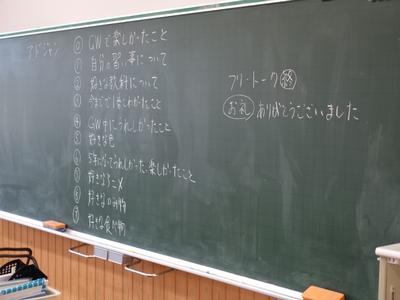 アドジャン
⓪ GWで楽しかったこと
① 自分の習い事について
② 好きな教科について
③ 今までで1番こわかったこと
④ GW中にうれしかったこと
⑤ 好きな色
⑥ 5年になってうれしかった、楽しかったこと
⑦ 好きなアニメ
⑧ 好きなのみ物
⑨ 好きな食べ物
フリートーク 終
お礼 ありがとうございました